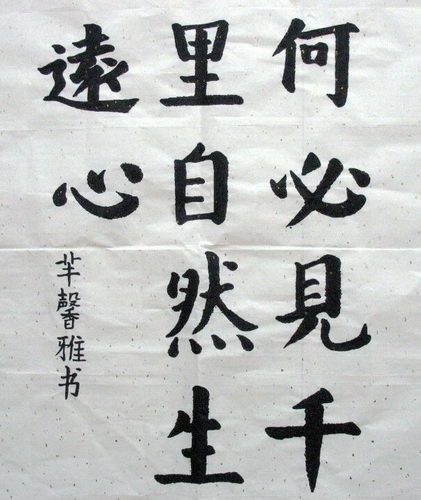 何必見千
里自然生
遠心
芈馨雅书